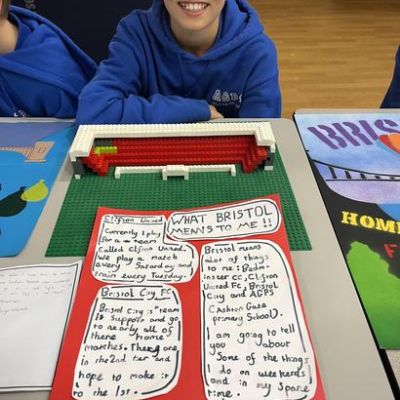 AGPS
BRIS
HOME
F
WHAT BRISTOL
MEANS TO ME !!
Clifton United
Currently I play
for a team
Called Clifton
United.
We play a match
every Saturday and
train every Tuesday.
Bristol City FC
Bristol City is team
I support and go
to nearly all of
there home
matches. There are
in the 2nd tier and
hope to make it
to the 1st.
Bristol means
alot of things
to me: Bedm-
inster CC, Clifton
United FC, Bristol
City and AGPS
(Ashton Gate
primary School).
I am going to tell
you about
Some of the things
I do on weekends
and in my spare
time.